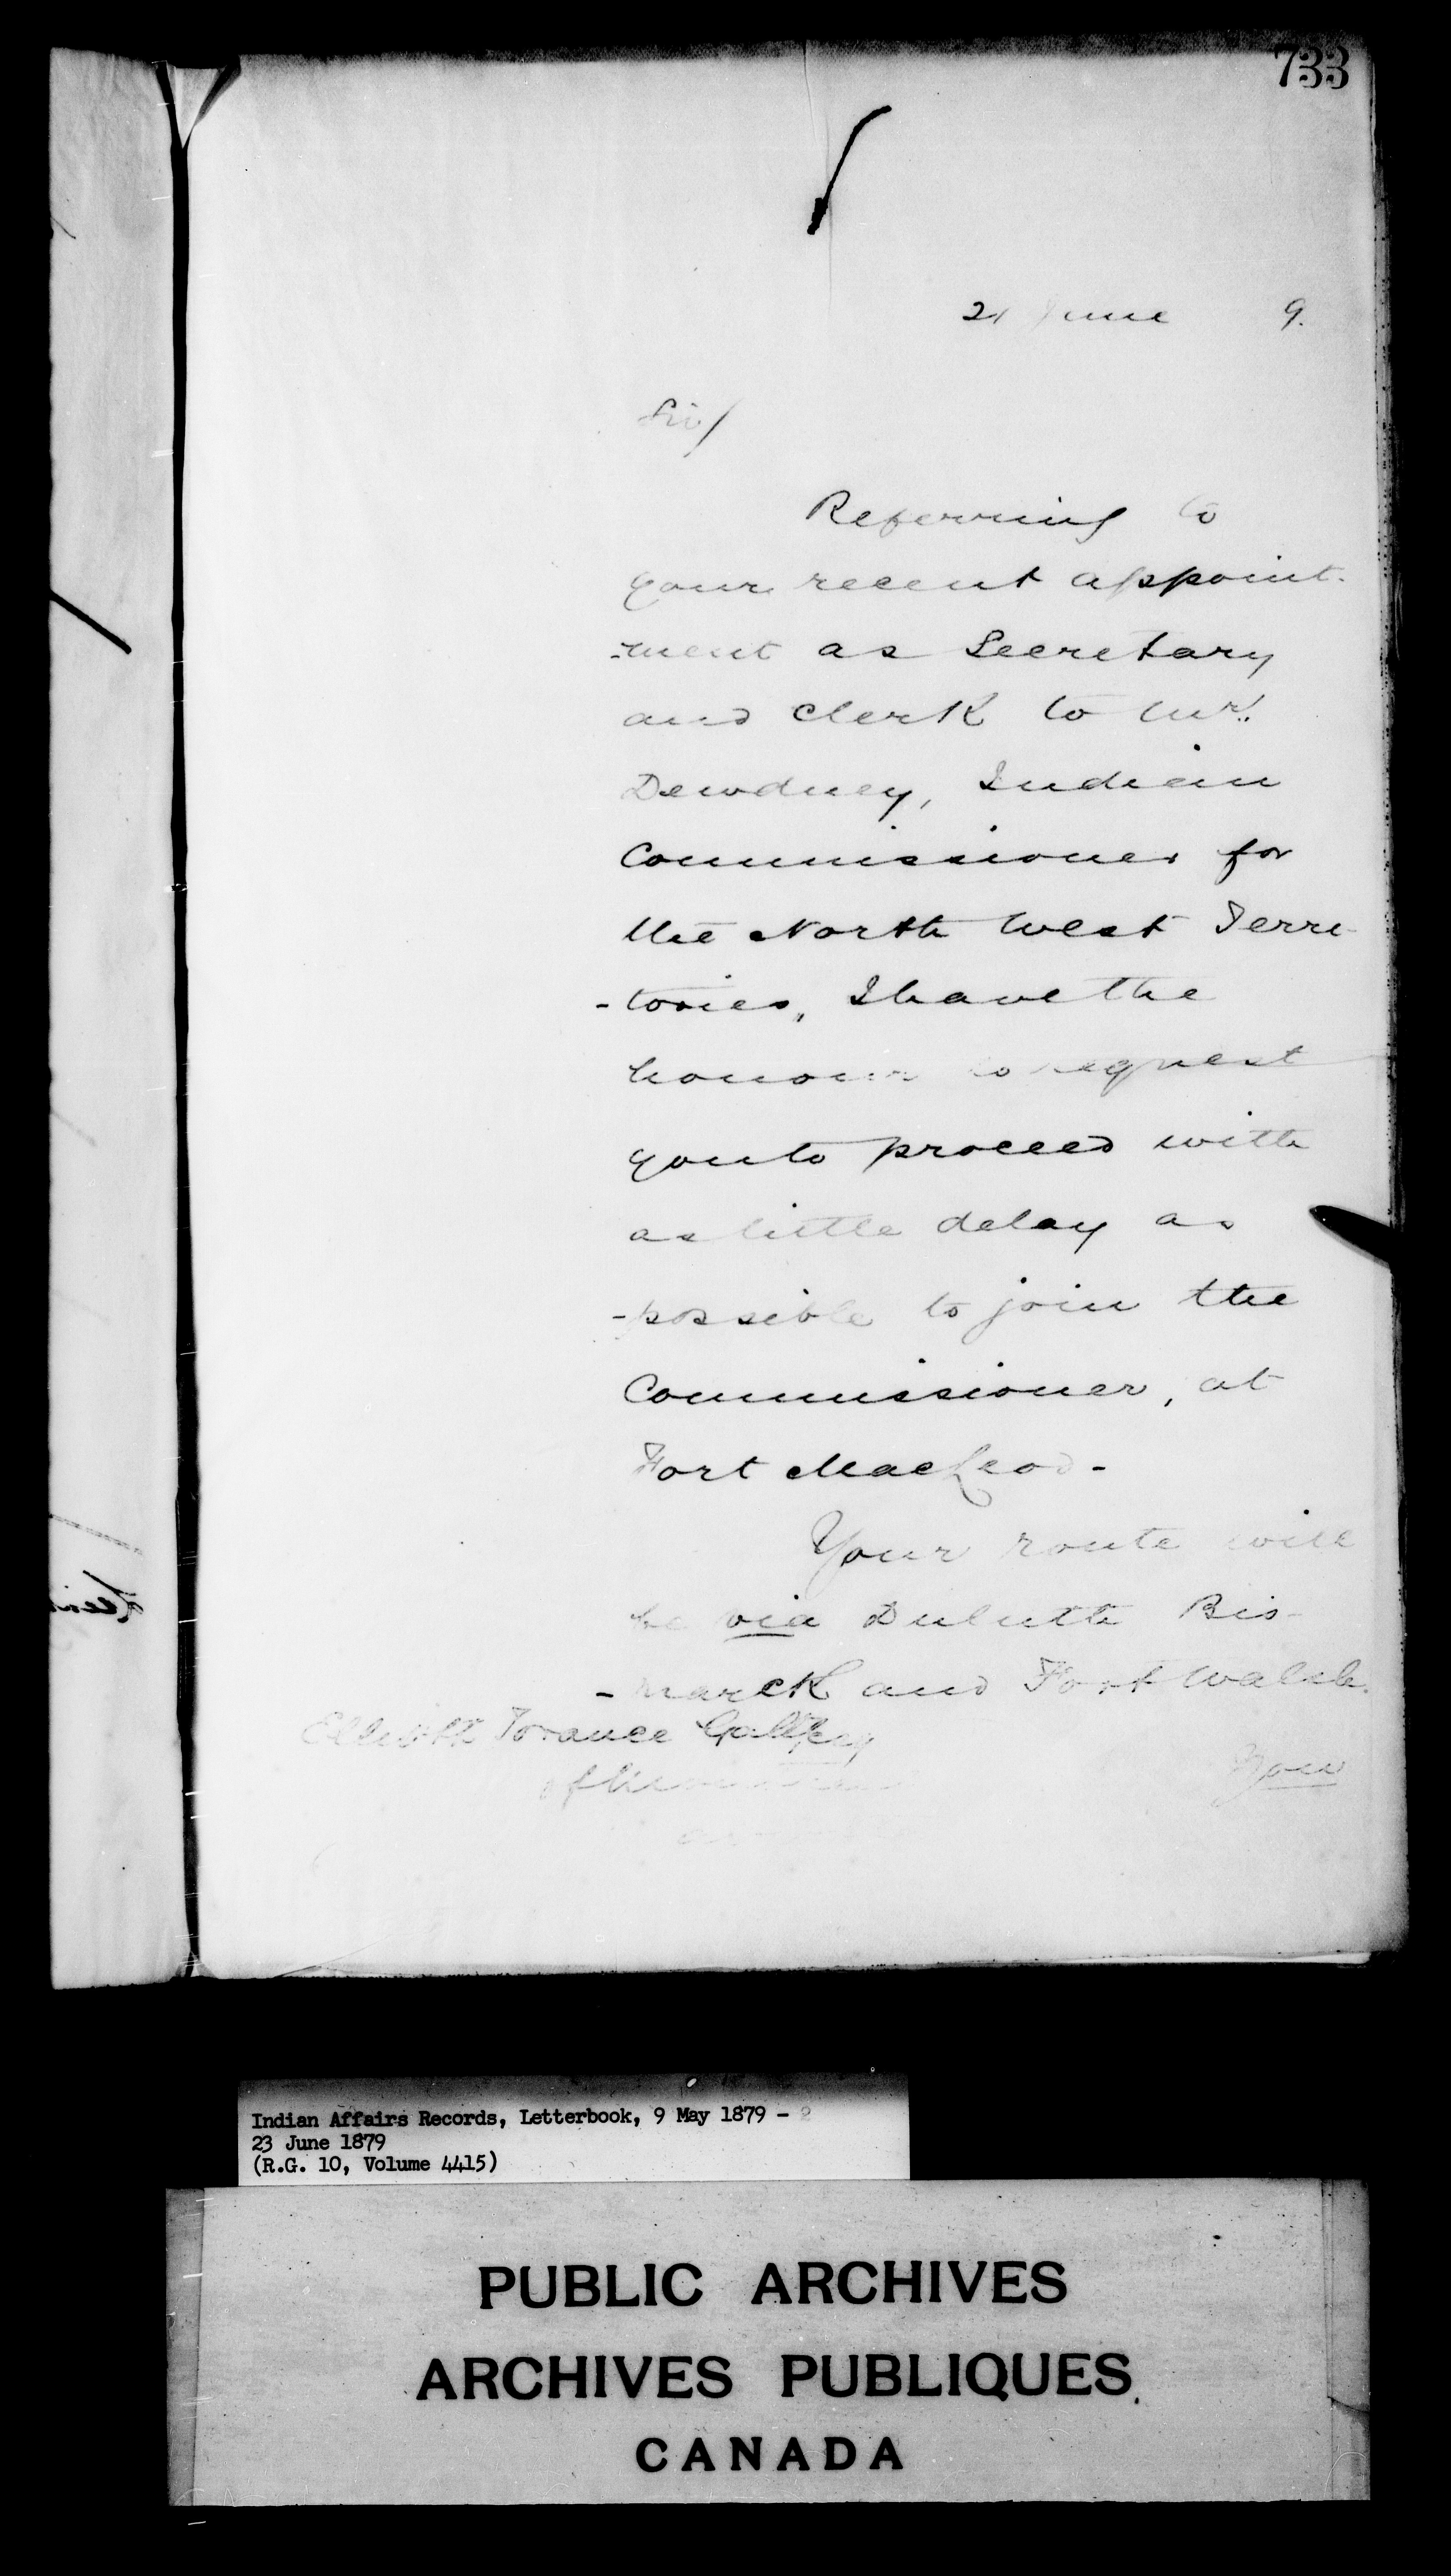 733
21 June 9.
Sir/
Referring to
your recent appoint-
-ment as Secretary
and Clerk to Mr.
Dewdney, Indian
Commissioner for
the North West Terri-
-tories, I have the
honour to request
you to proceed with
as little delay as
-possible to join the
Commissioner, at
Fort MacLeod -
Your route will
be via Duluth Bis-
-marck and Fort Walsh.
Elliott Torance
You
Indian Affairs Records, Letterbook, 9 May 1879 - 2
23 June 1879
(R.G. 10, Volume 4415)
PUBLIC ARCHIVES
ARCHIVES PUBLIQUES
CANADA